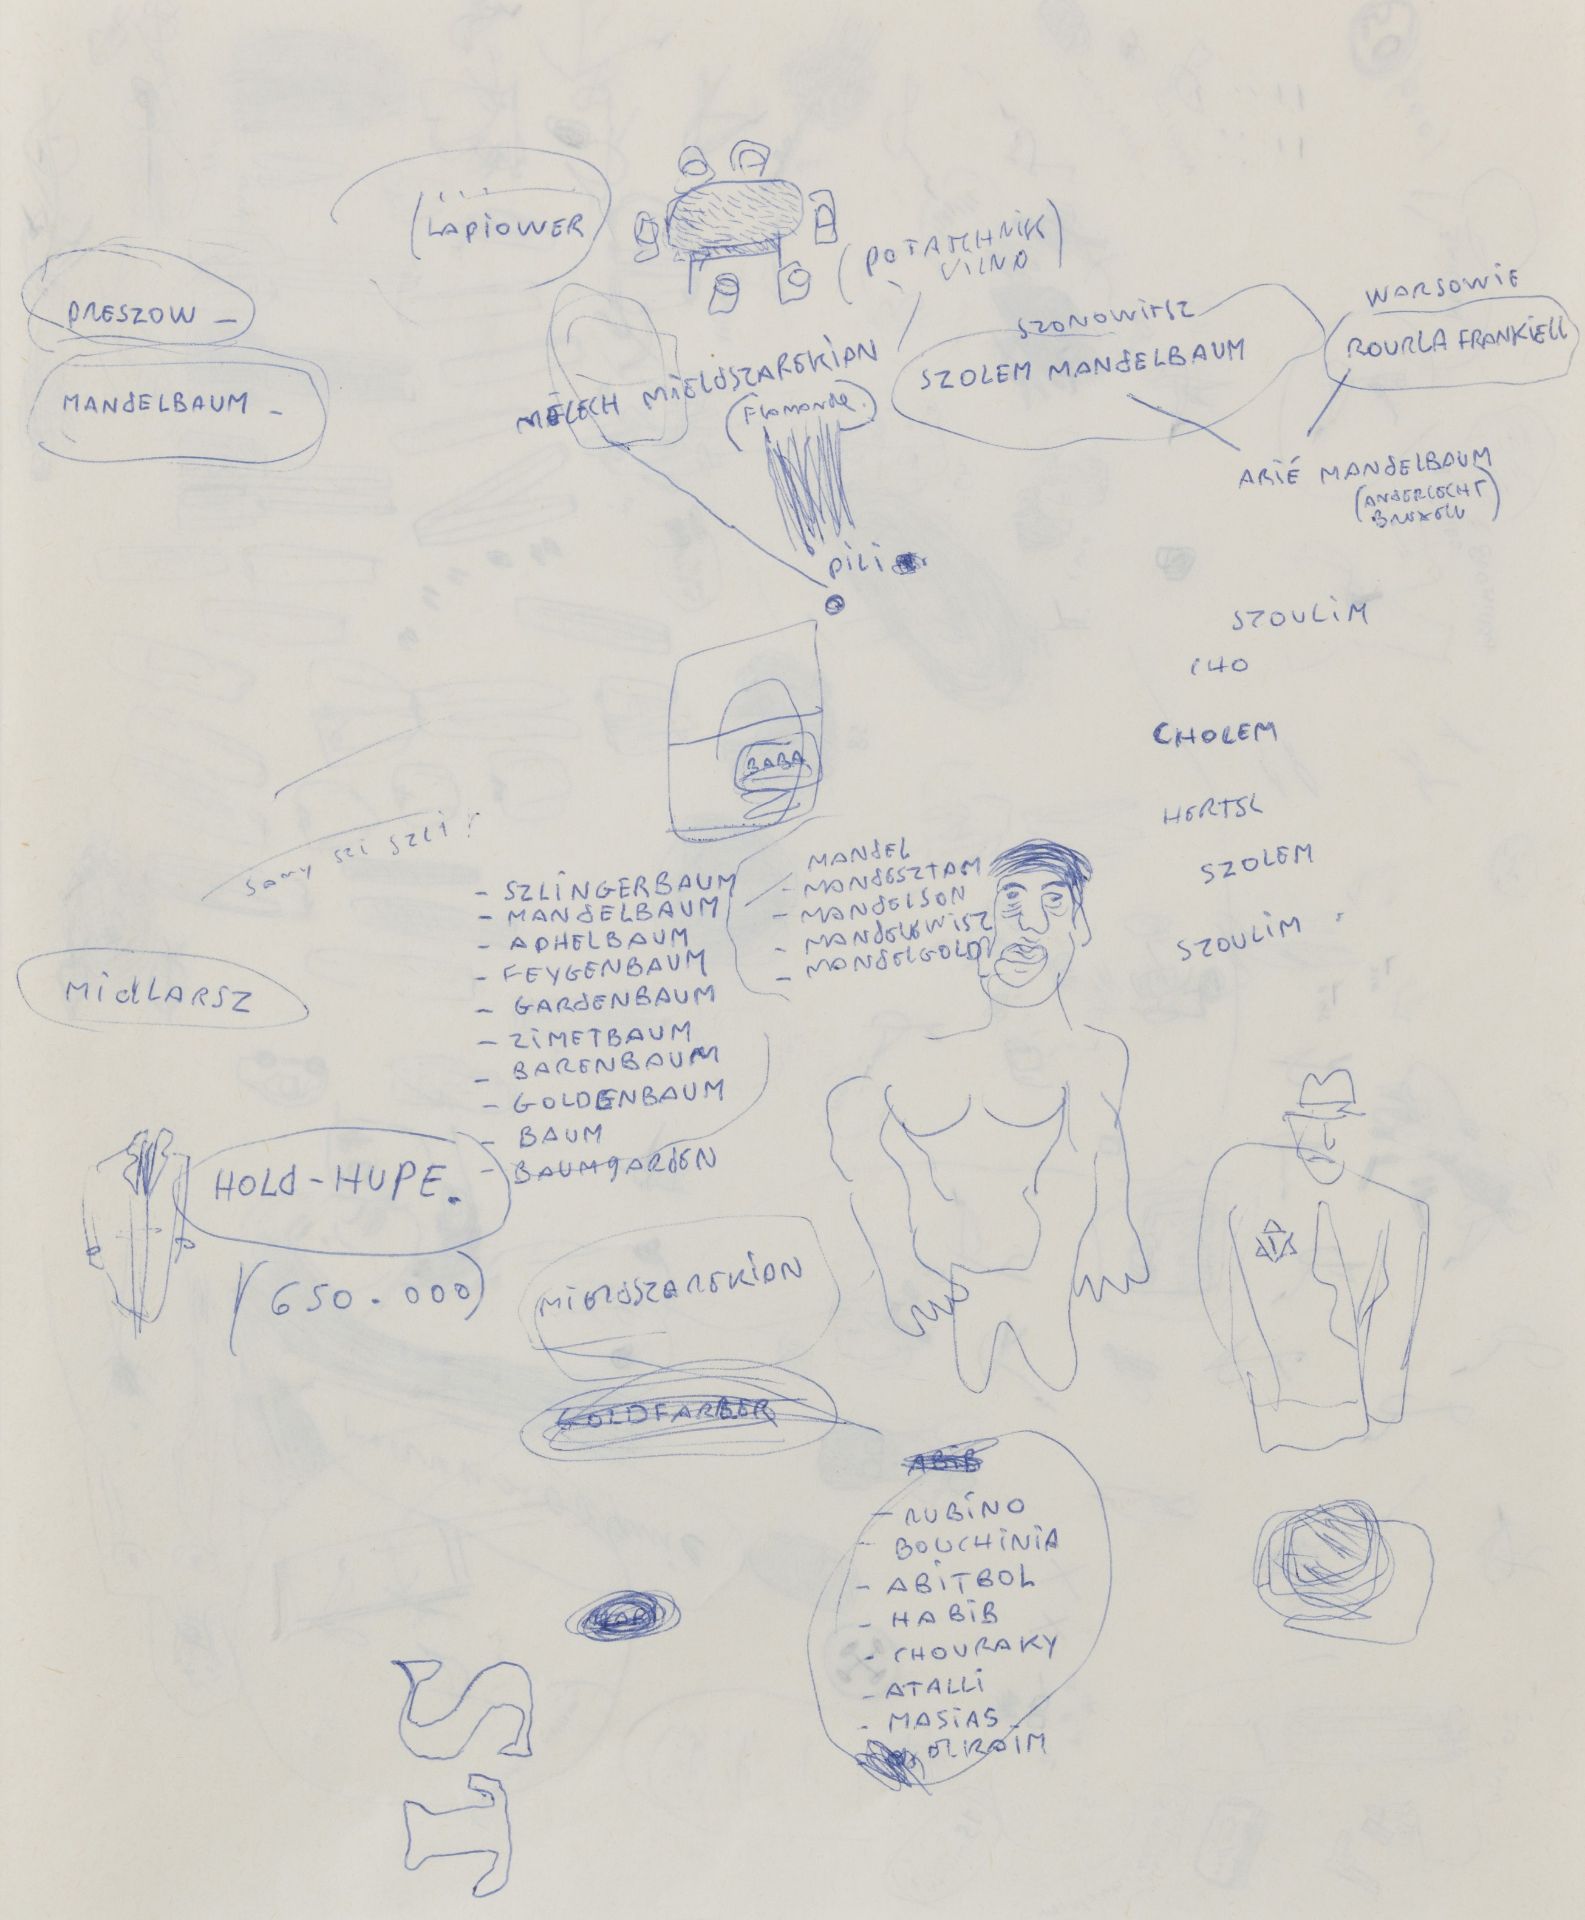 (LAPIOWER
(POTATCHNIK
VILNO)
PRESZOW -
MANDELBAUM -
MELECH MIELDSZAREKIAN
(Flamande.)
SZONOWITSZ
SZOLEM MANDELBAUM
WARSOWIE
ROURLA FRANKIELL
ARIÉ MANDELBAUM
(ANDERLECHT
BRUXELLE)
PILI
SZOULIM
CHO
CHOLEM
HERTSL
SZOLEM
SZOULIM
BABA
SAMY SZI SZLI ?
- SZLINGERBAUM
- MANDELBAUM
- APHELBAUM
- FEYGENBAUM
- GARDENBAUM
- ZIMETBAUM
- BARENBAUM
- GOLDENBAUM
- BAUM
- BAUMGARDEN
MANDEL
- MANDESZTAM
- MANDELSON
- MANDELEWISZ
- MANDELGOLD
MIDLARSZ
HOLD-HUPE.
(650.000)
MIELDSZAREKIAN
GOLDFARBER
ABIB
- RUBINO
- BOUCHINIA
- ABITBOL
- HABIB
- CHOURAKY
- ATALLI
- MASIAS